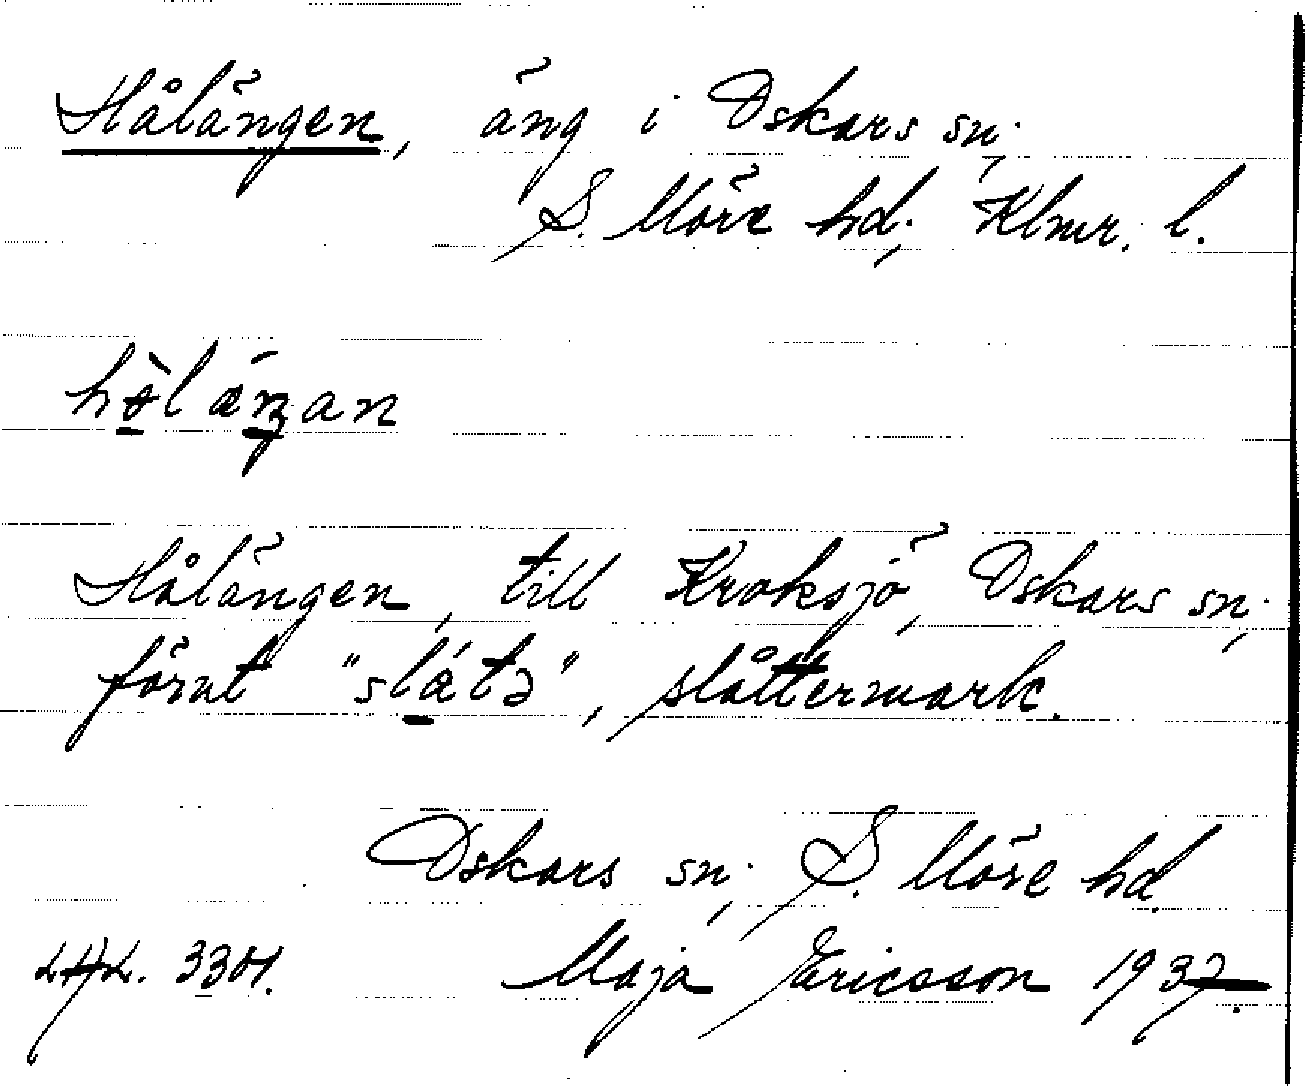 Hålängen, äng i Oskars sn.,
S. Möre hd, Klmr. l.
Hålängen, till Kroksjö, Oskars sn.,
förut "slátə", slåttermark.
Oskars sn., S. Möre hd.
Maja Ericsson 1937.